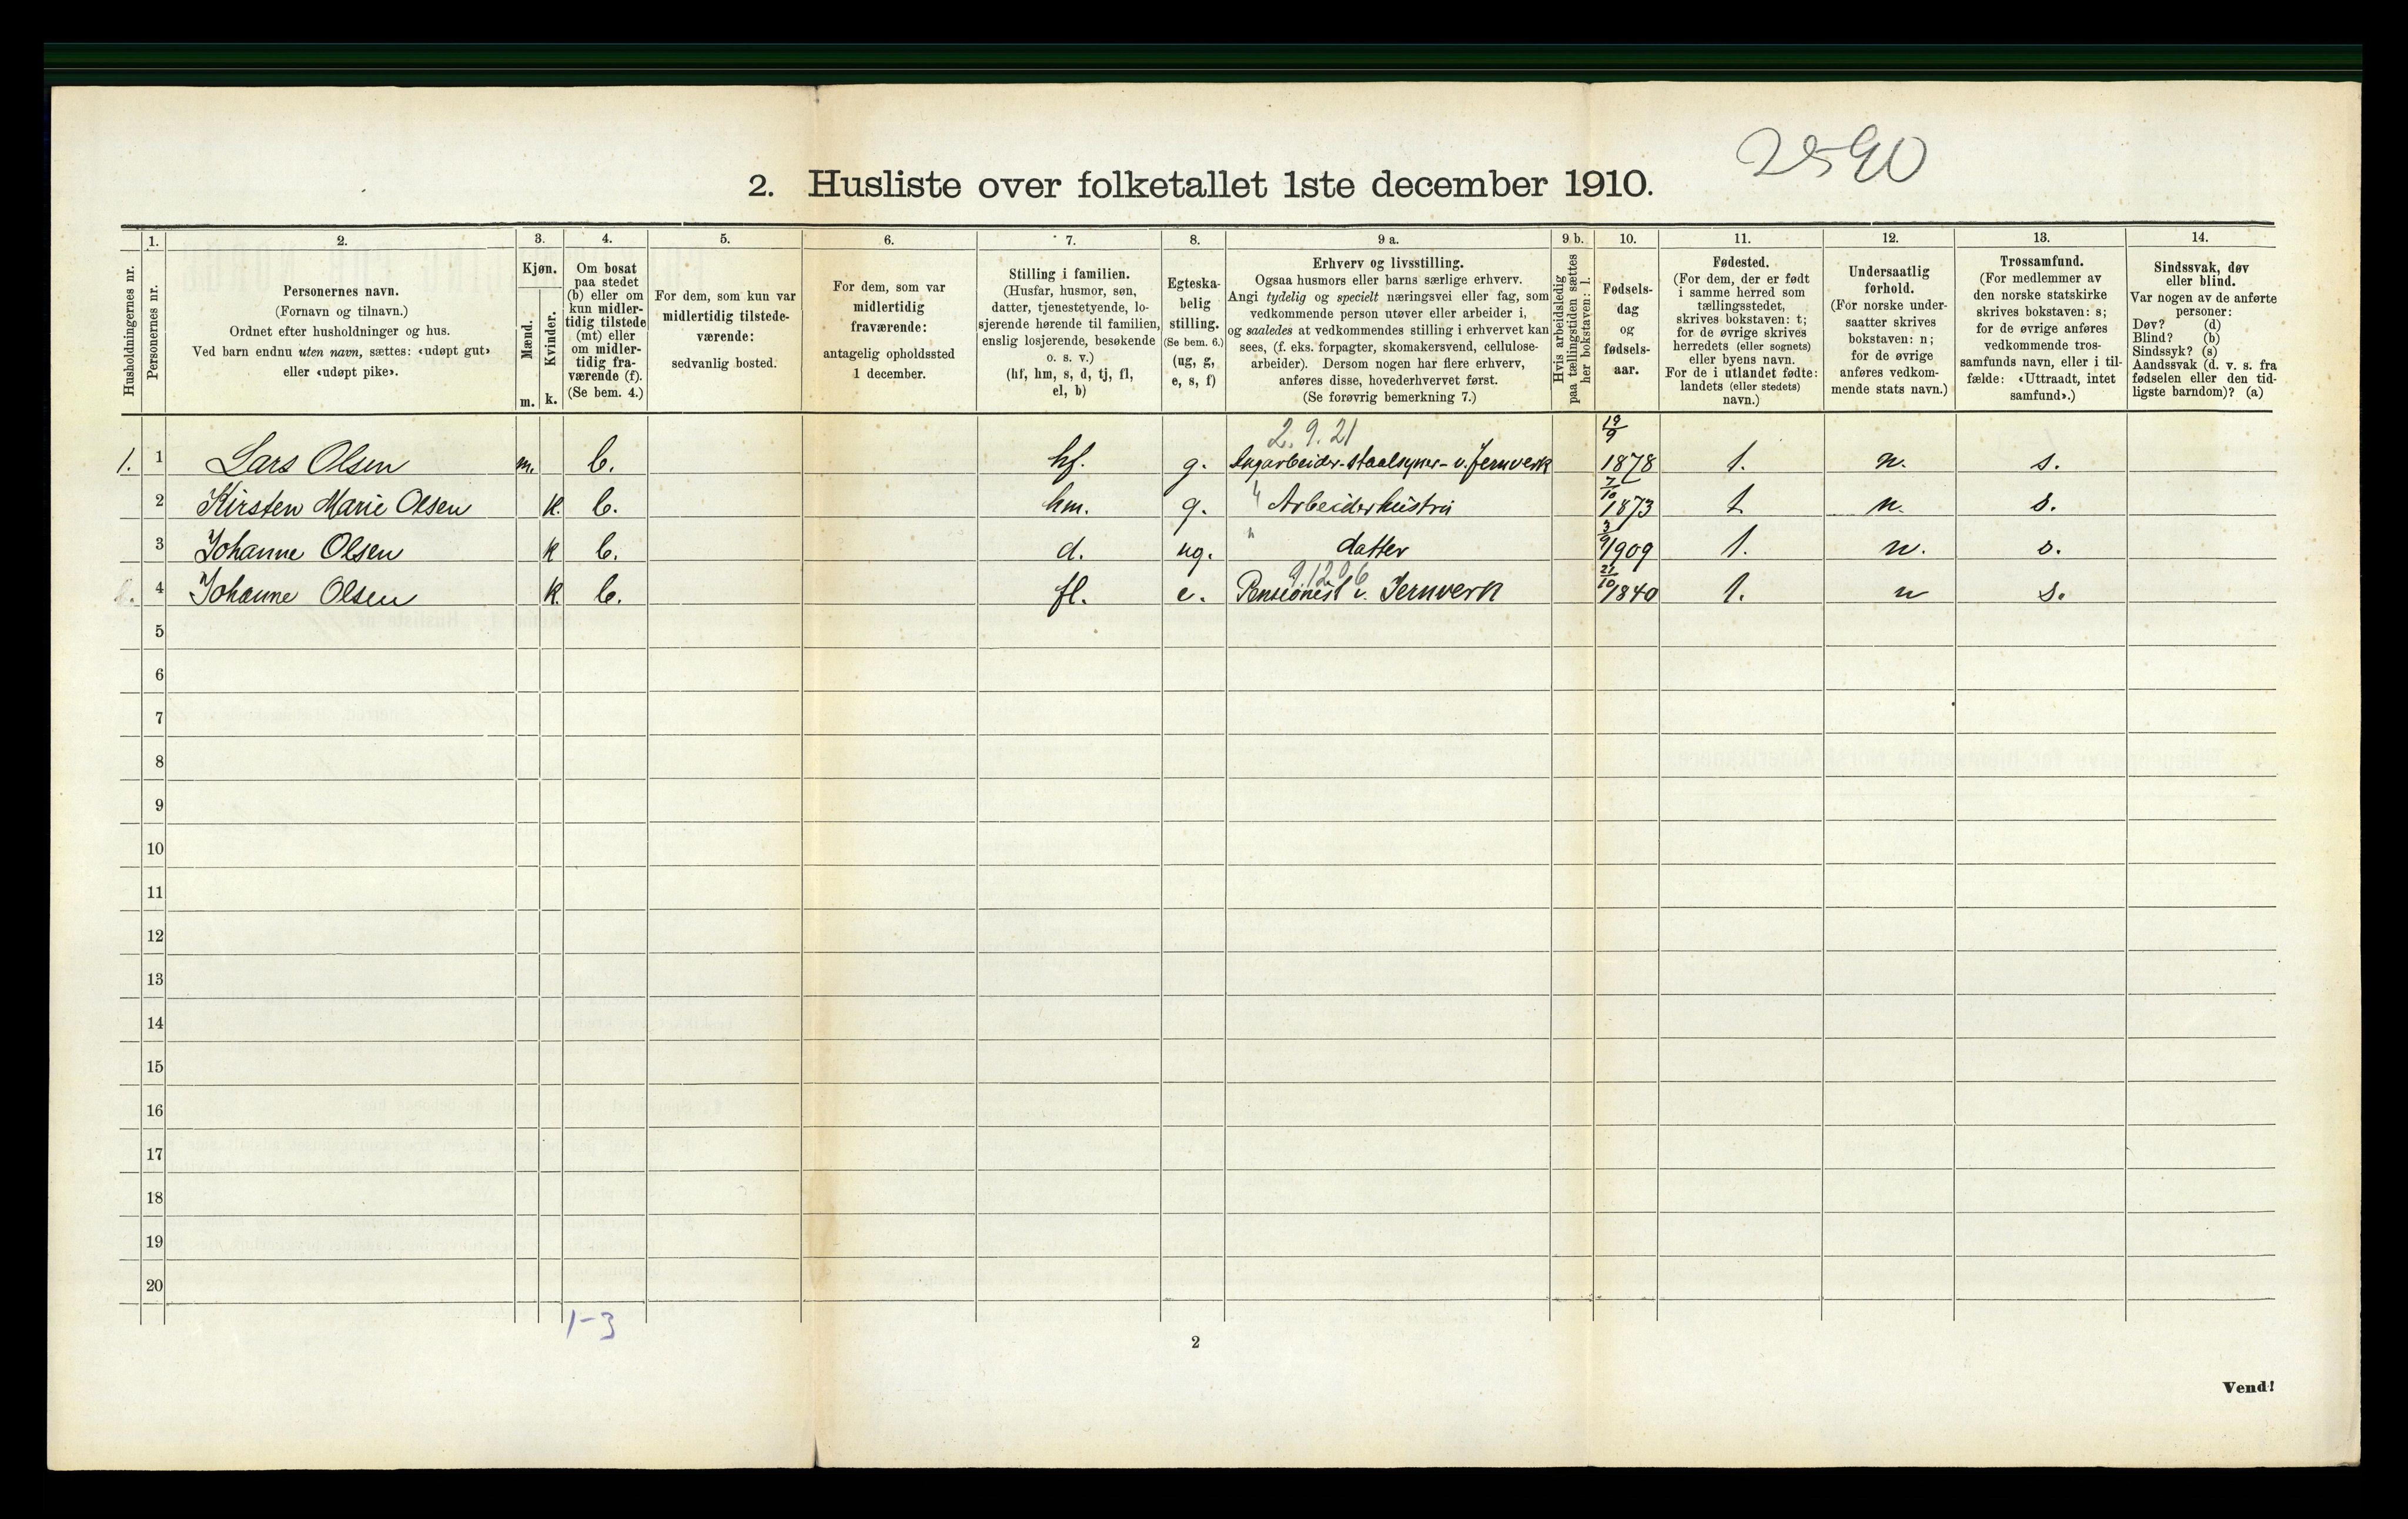 2590
2. Husliste over folketallet 1ste december 1910.
Husholdningernes nr.
1.
Personernes nr.
2.
Personernes navn.
(Fornavn og tilnavn.)
Ordnet efter husholdninger og hus.
Ved barn endnu uten navn, sættes: «udøpt gut»
eller «udøpt pike».
3.
Kjøn.
Mænd.
m.
Kvinder.
k.
4.
Om bosat
paa stedet
(b) eller om
kun midler-
tidig tilstede
(mt) eller
om midler-
tidig fra-
værende (f).
(Se bem. 4.)
5.
For dem, som kun var
midlertidig tilstede-
værende:
sedvanlig bosted.
6.
For dem, som var
midlertidig
fraværende:
antagelig opholdssted
1 december.
7.
Stilling i familien.
(Husfar, husmor, søn,
datter, tjenestetyende, lo-
sjerende hørende til familien,
enslig losjerende, besøkende
o. s. v.)
(hf, hm, s, d, tj, fl,
el, b)
8.
Egteska-
belig
stilling.
(Se bem. 6.)
(ug, g,
e, s, f)
9 a.
Erhverv og livsstilling.
Ogsaa husmors eller barns særlige erhverv.
Angi tydelig og specielt næringsvei eller fag, som
vedkommende person utøver eller arbeider i,
og saaledes at vedkommendes stilling i erhvervet kan
sees, (f. eks. forpagter, skomakersvend, cellulose-
arbeider). Dersom nogen har flere erhverv,
anføres disse, hovederhvervet først.
(Se forøvrig bemerkning 7.)
9 b.
Hvis arbeidsledig
paa tællingstiden sættes
her bokstaven: l.
10.
Fødsels-
dag
og
fødsels-
aar.
11.
Fødested.
(For dem, der er født
i samme herred som
tællingsstedet,
skrives bokstaven: t;
for de øvrige skrives
herredets (eller sognets)
eller byens navn.
For de i utlandet fødte:
landets (eller stedets)
navn.)
12.
Undersaatlig
forhold.
(For norske under-
saatter skrives
bokstaven: n;
for de øvrige
anføres vedkom-
mende stats navn.)
13.
Trossamfund.
(For medlemmer av
den norske statskirke
skrives bokstaven: s;
for de øvrige anføres
vedkommende tros-
samfunds navn, eller i til-
fælde: «Uttraadt, intet
samfund».)
14.
Sindssvak, døv
eller blind.
Var nogen av de anførte
personer:
Døv? (d)
Blind? (b)
Sindssyk? (s)
Aandssvak (d. v. s. fra
fødselen eller den tid-
ligste barndom)? (a)
2.9.21
1. 1 Lars Olsen m. b. hf. g. staalsyner- v. Jernverk 19/9 1878 t. n. s.
2 Kirsten Marie Olsen k. b. hm. g. " Arbeiderhustru 7/10 1873 t n. s.
3 Johanne Olsen k b. d. ug. " datter 3/9 1909 t. n. s.
4 Johanne Olsen k. b. fl. e. Pensionist v. Jernverk 21/10 1840 t. n s.
5
6
7
8
9
10
11
12
13
14
15
16
17
18
19
20
1-3
2
Vend!